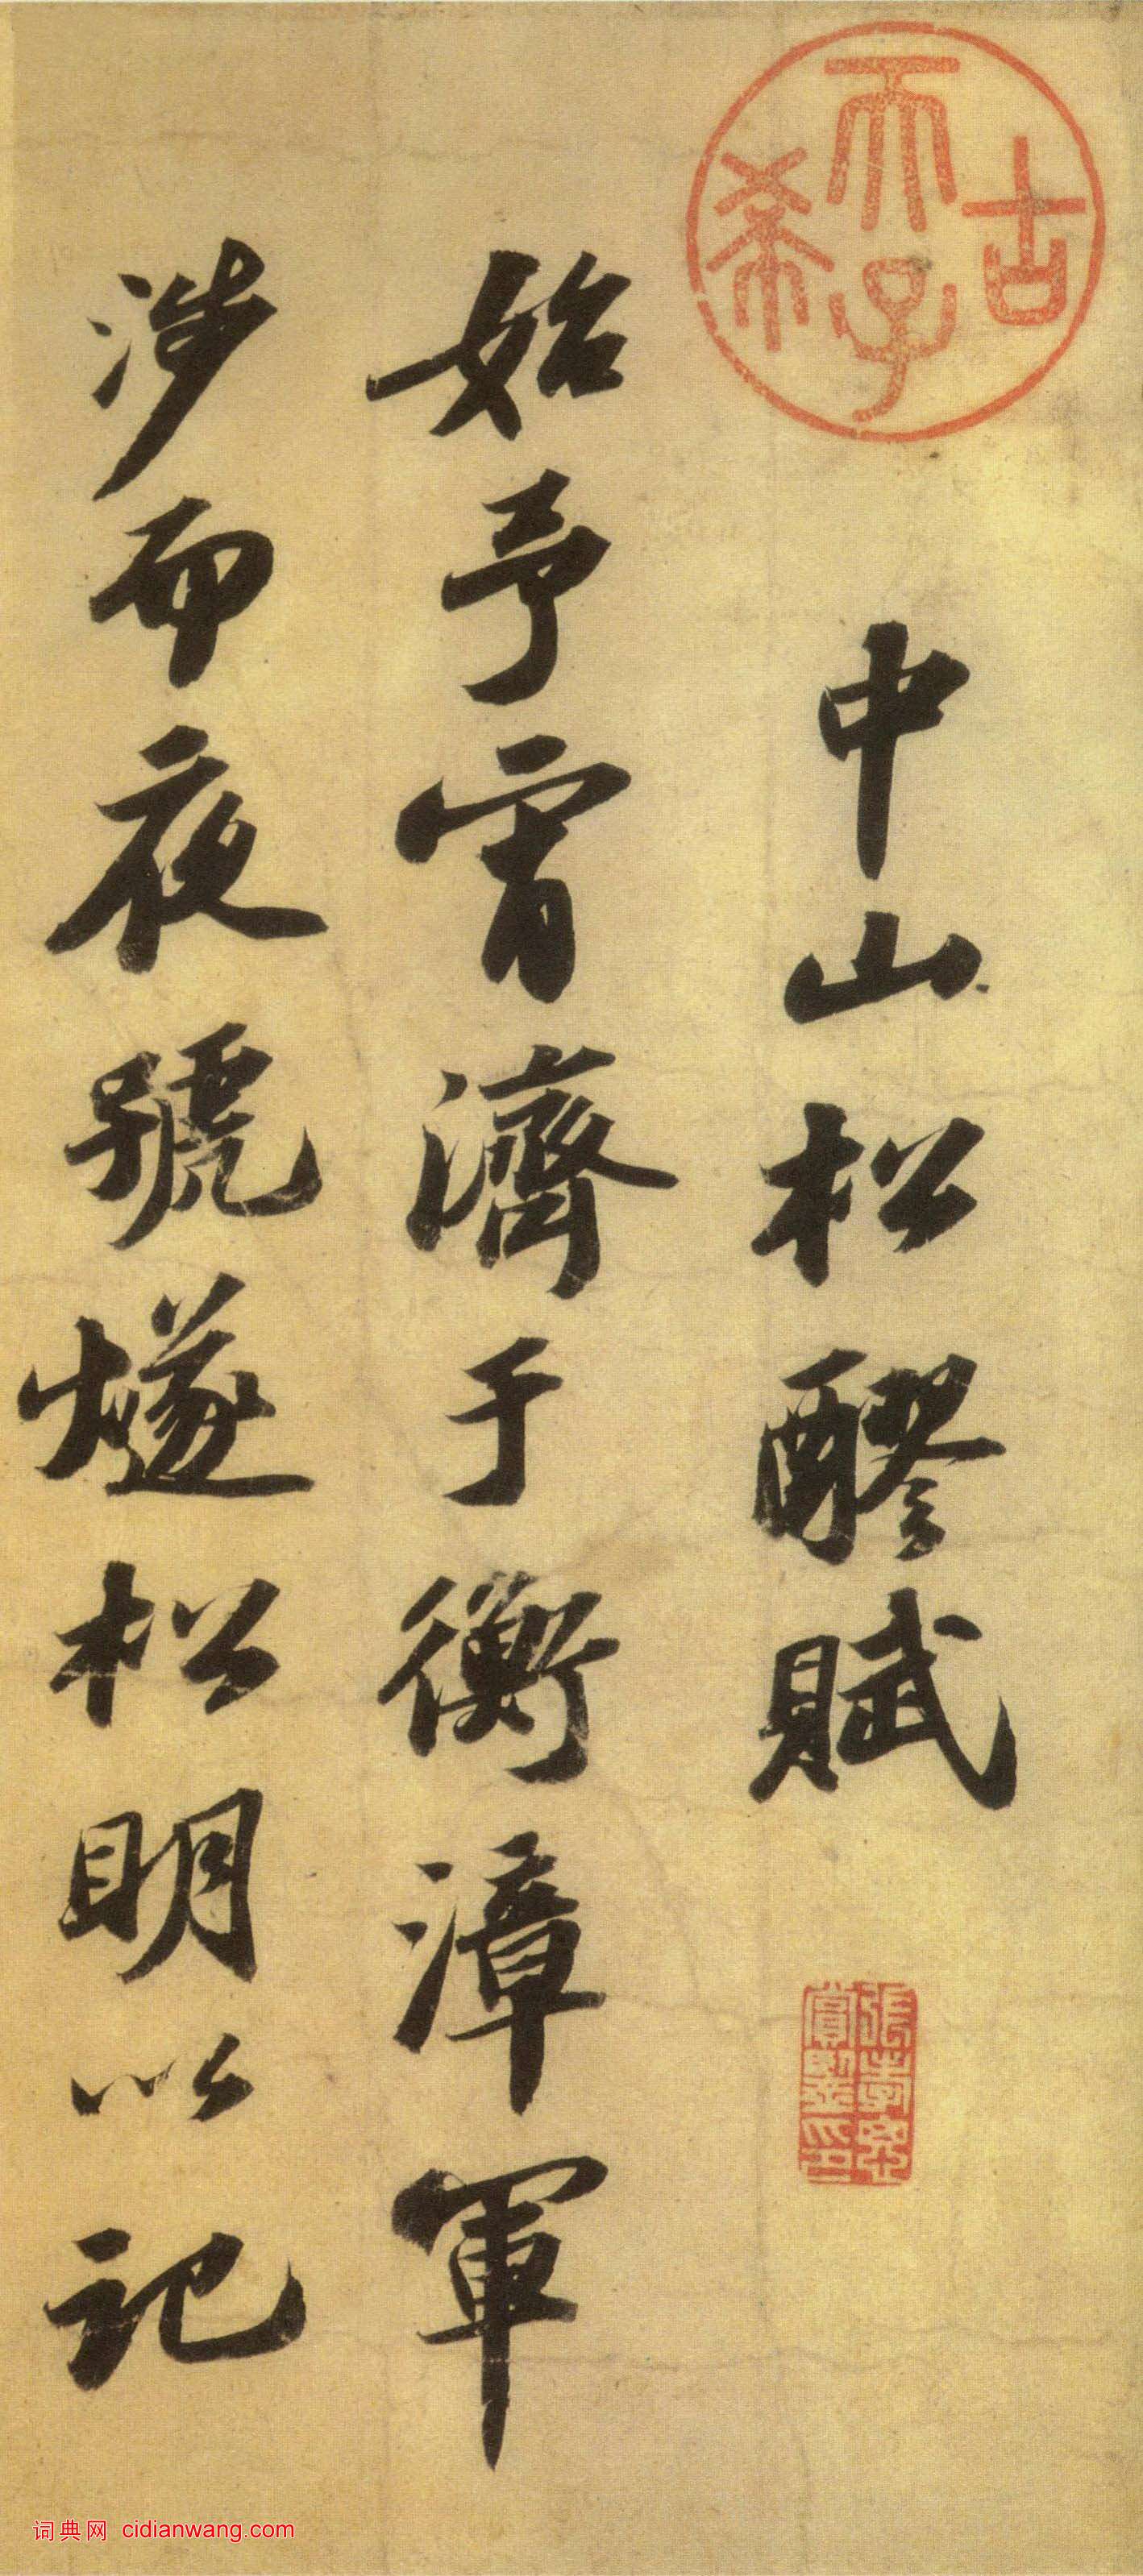 中山松醪賦
始予宵濟于衡漳軍
涉而夜號燧松明以記
古
天子
希
張孝思
賞鑒印
词典网 cidianwang.com